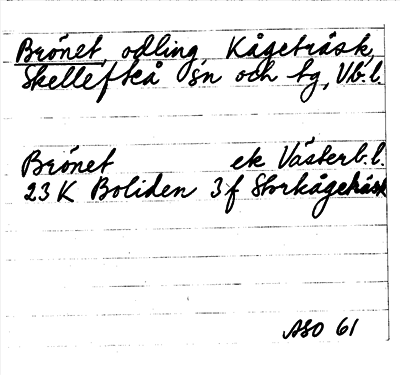 Brönet, odling, Kågeträsk,
Skellefteå sn och tg, Vb.l.
Brönet ek Västerb.l.
23 K Boliden 3f Storkågeträsk
ASO 61